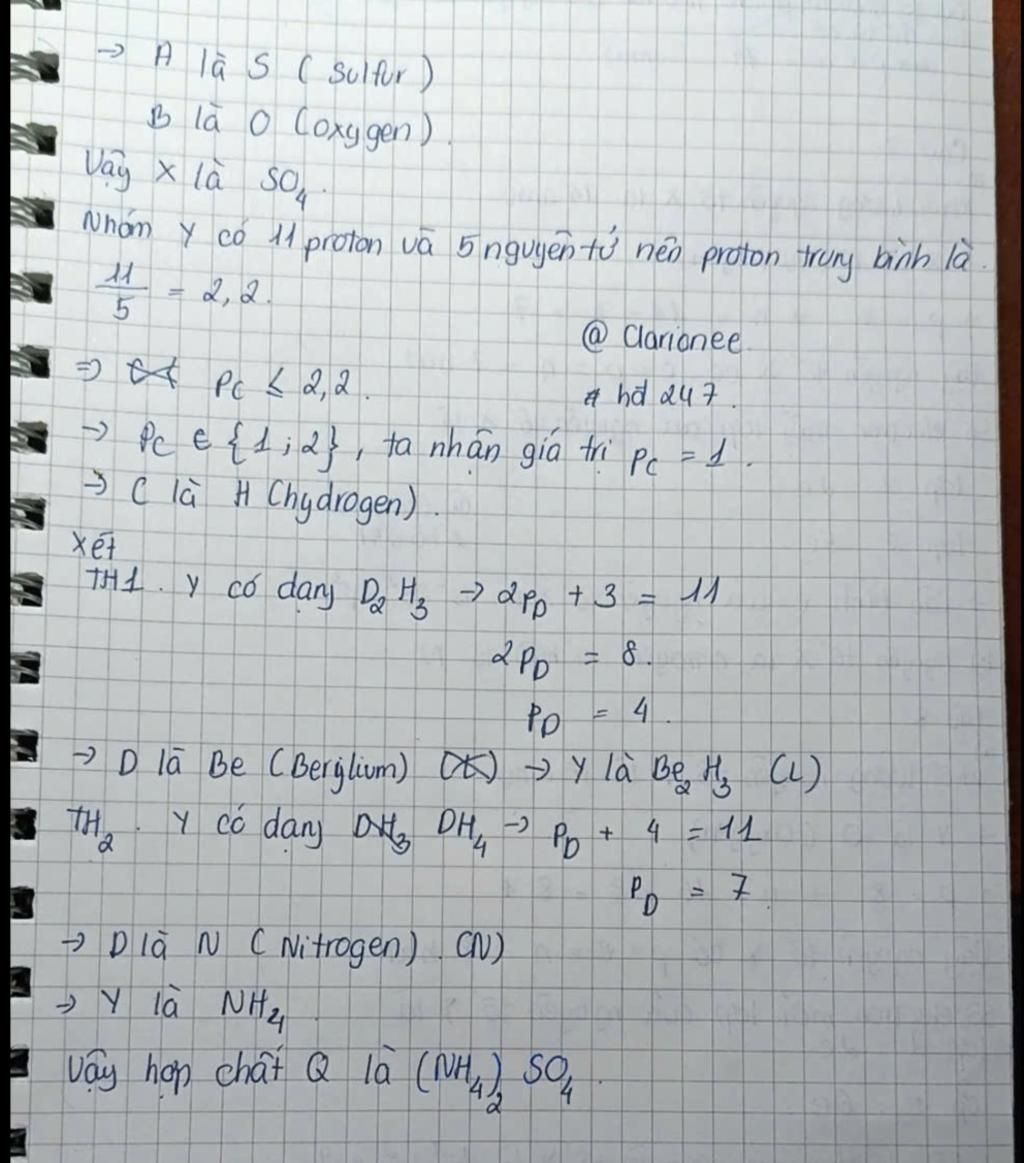 → A là S (Sulfur)
B là O (oxygen).
Vậy X là SO₄.
Nhóm Y có 11 proton và 5 nguyên tử nên proton trung bình là.
11/5 = 2,2.
@ Clarionee.
⇒ Pc ≤ 2,2.
# hd 247.
→ Pc ∈ {1;2}, ta nhận giá trị Pc = 1.
→ C là H (hydrogen).
Xét
TH1. Y có dạng D₂H₃ → 2P_D + 3 = 11
2P_D = 8.
P_D = 4.
→ D là Be (Berylium) → Y là Be₂H₃ (L)
TH₂. Y có dạng DH₃ DH₄ → P_D + 4 = 11
P_D = 7.
→ D là N (Nitrogen). (N)
→ Y là NH₄.
Vậy hợp chất Q là (NH₄)₂SO₄.